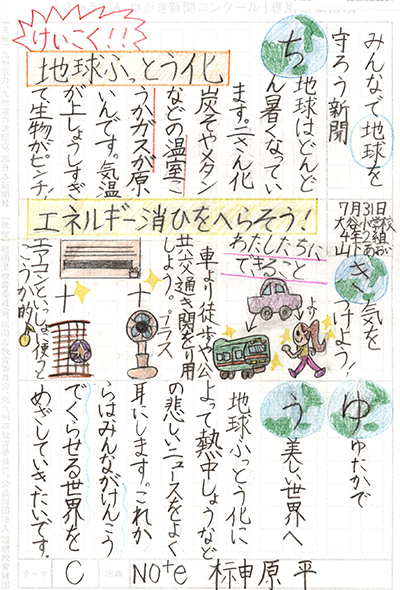 みんなで地球を
守ろう新聞
7月31日
大谷小学校
けいこく!!
地球ふっとう化
ち
地球はどんど
ん暑くなってい
ます。二さん化
炭そやメタン
などの温室こ
うかガスが原
いんです。気温
が上しょうしすぎ
て生物がピンチ!
エネルギー消ひをへらそう!
わたしたちに
できること
き
気を
つけよう!
車より徒歩や公
共交通き関をり用
しよう。プラス
より
エアコンといっしょに使うと
こうか的
ゆ
ゆたかで
う
美しい世界へ
地球ふっとう化に
よって熱中しょうなど
の悲しいニュースをよく
耳にします。これか
らはみんながけんこう
でくらせる世界を
めざしていきたいです。
テーマ C 出典 Note 栃神原 平